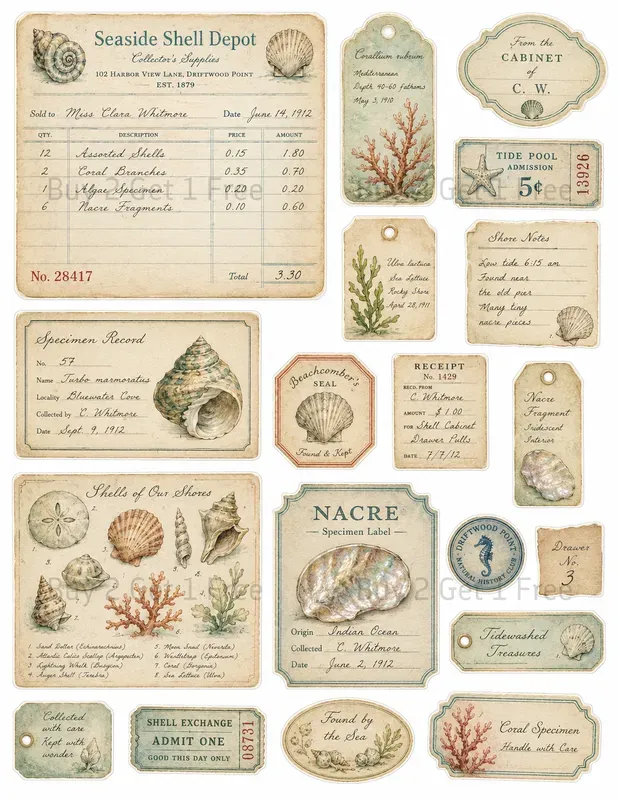 Seaside Shell Depot
Collector's Supplies
102 HARBOR VIEW LANE, DRIFTWOOD POINT
EST. 1879
Sold to Miss Clara Whitmore Date June 14, 1912
QTY. DESCRIPTION PRICE AMOUNT
12 Assorted Shells 0.15 1.80
2 Coral Branches 0.35 0.70
1 Algae Specimen 0.20 0.20
6 Nacre Fragments 0.10 0.60
No. 28417 Total 3.30
Buy 2 Get 1 Free
Corallium rubrum
Mediterranean
Depth 40-60 fathoms
May 3, 1910
Buy 2 Get 1 Free
From the
CABINET
of
C. W.
TIDE POOL
ADMISSION
5¢
13926
Ulva lactuca
Sea Lettuce
Rocky Shore
April 28, 1911
Shore Notes
Low tide 6:15 am
Found near
the old pier
Many tiny
nacre pieces
Specimen Record
No. 57
Name Turbo marmoratus
Locality Bluewater Cove
Collected by C. Whitmore
Date Sept. 9, 1912
Beachcomber's
SEAL
Found & Kept
RECEIPT
No. 1429
RECD. FROM
C. Whitmore
AMOUNT $ 1.00
FOR Shell Cabinet
Drawer Pulls
DATE 7/7/12
Nacre
Fragment
Iridescent
Interior
Shells of Our Shores
1. Sand Dollar (Echinarachnius)
2. Atlantic Calico Scallop (Argopecten)
3. Lightning Whelk (Busycon)
4. Auger Shell (Terebra)
5. Moon Snail (Neverita)
6. Wentletrap (Epitonium)
7. Coral (Gorgonia)
8. Sea Lettuce (Ulva)
Buy 2 Get 1 Free
NACRE
Specimen Label
Origin Indian Ocean
Collected C. Whitmore
Date June 2, 1912
Buy 2 Get 1 Free
DRIFTWOOD POINT
NATURAL HISTORY CLUB
Drawer
No.
3
Tidewashed
Treasures
Collected
with care
Kept with
wonder
SHELL EXCHANGE
ADMIT ONE
GOOD THIS DAY ONLY
08731
Found by
the Sea
Coral Specimen
Handle with Care